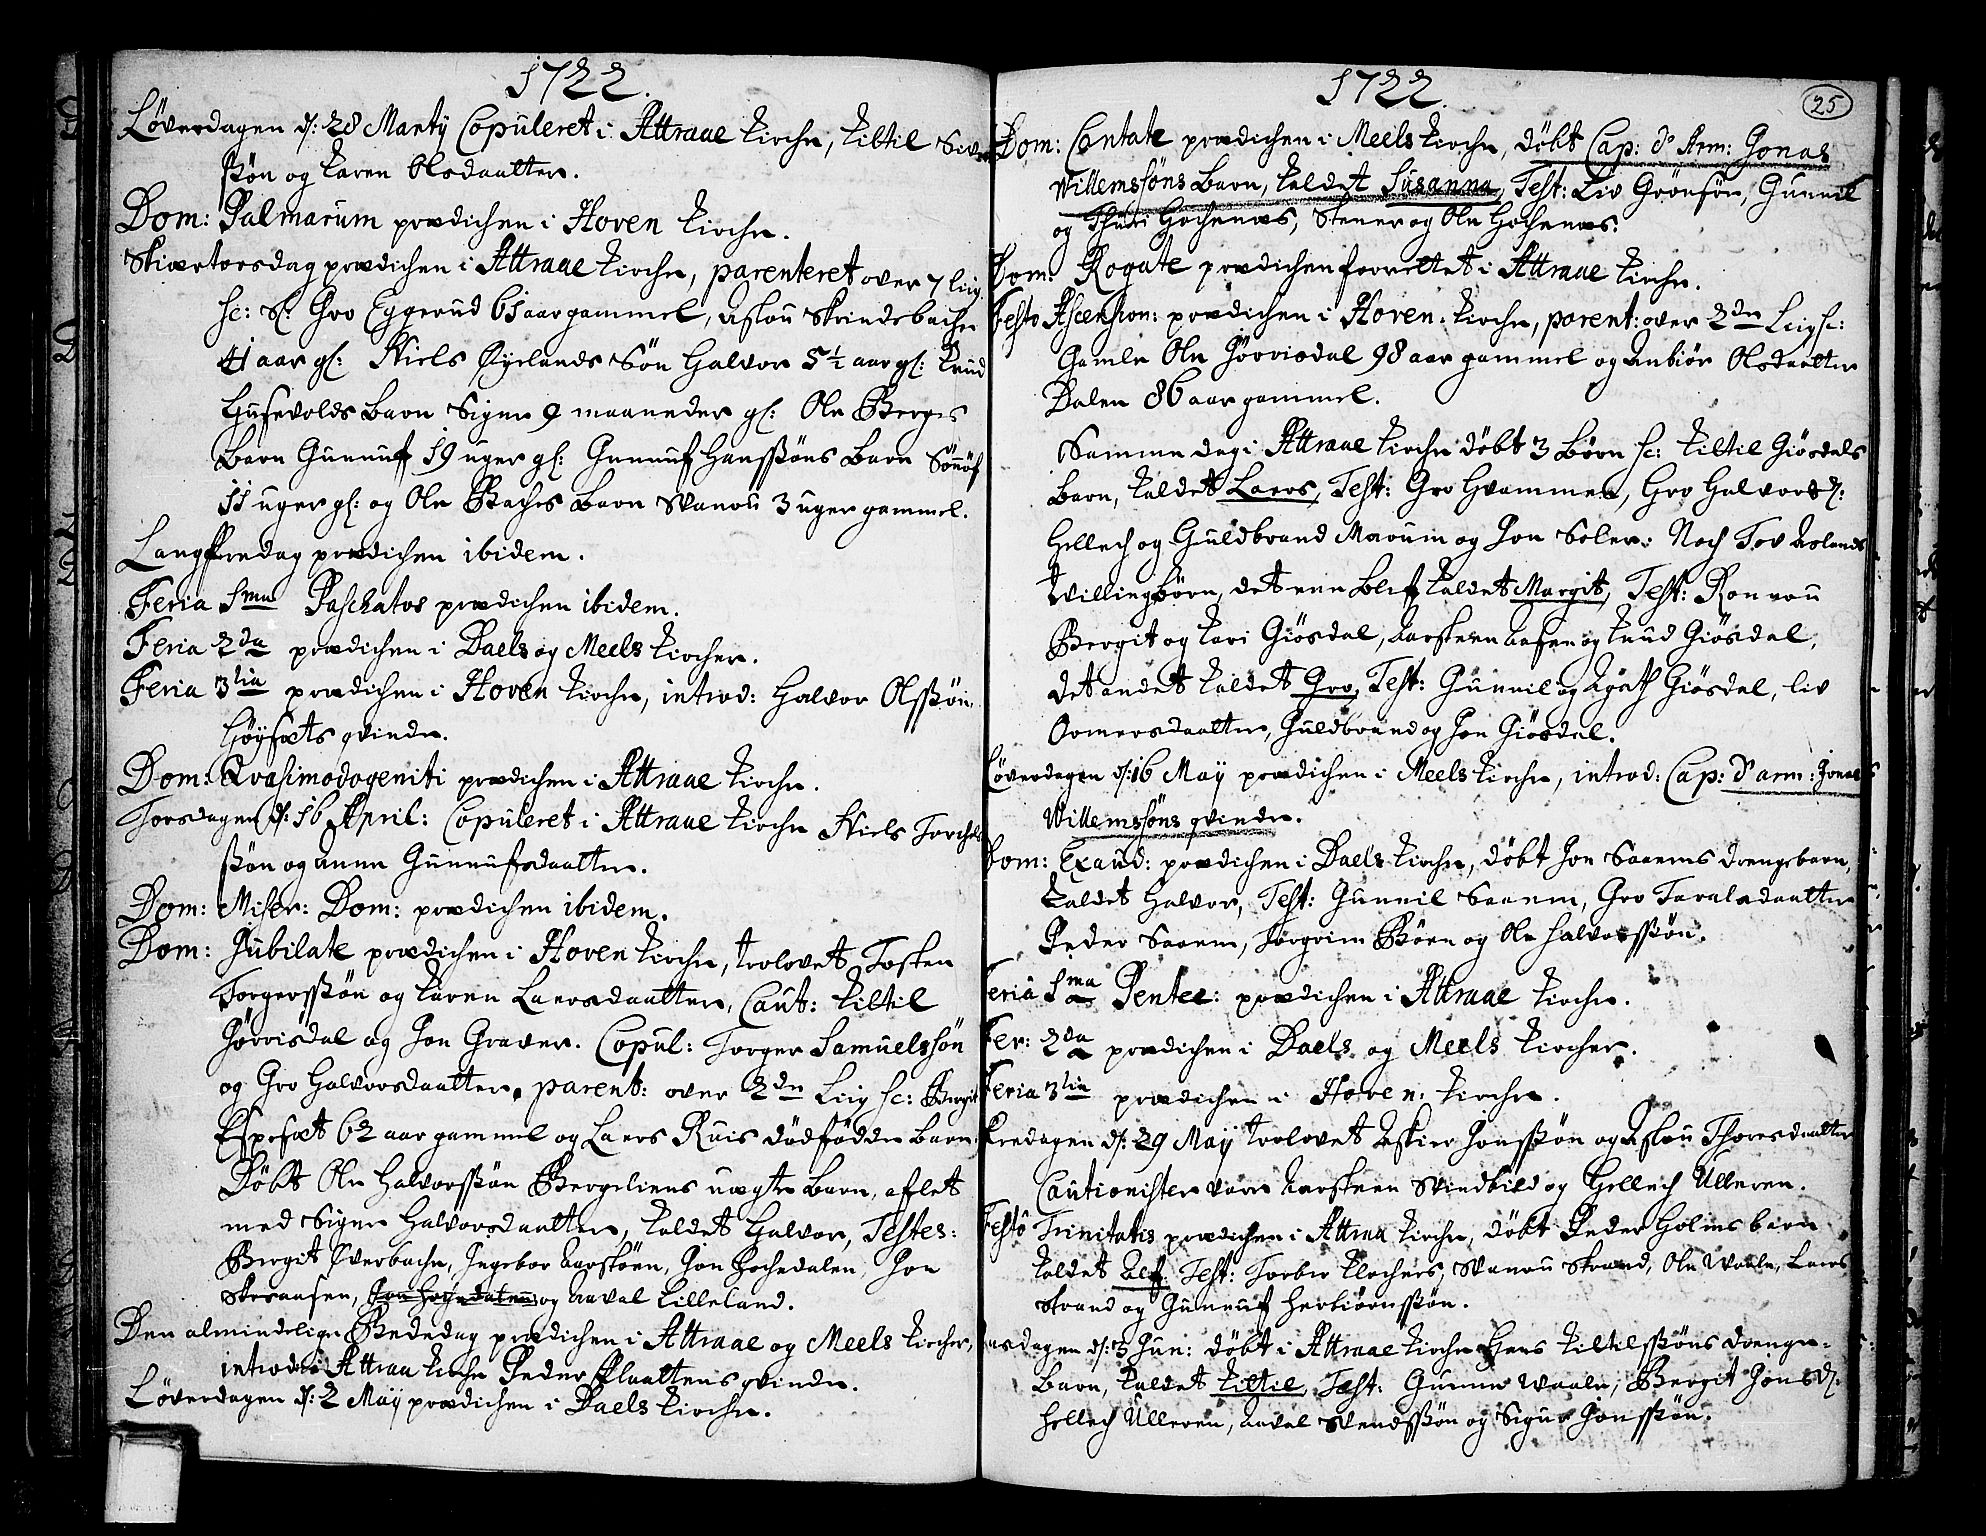 1722.
Löverdagen d: 28 Marty Copuleret i Attraae Kirche, Kittil Siver
ßön og Karen Olsdaatter.
Dom: Palmarum prædichen i Hoven Kirche.
Skiærtorsdag prædichen i Attraae Kirche, parenteret over 7 liig
sc: S: Gro Eggerud 61 aar gammel, Aslou Skrindebache
41 aar gl: Niels Øyelands Sön Halvor 5½ aar gl: Knud
Husevolds Barn Signe 9 maaneder gl: Ole Berges
Barn Gunnuf 19 uger gl: Gunnuf Hansßöns Barn
11 uger gl: og Ole Baches Barn Svanou 3 uger gammel.
Langfredag prædichen ibidem.
Feria 1ma Paschatos prædichen ibidem.
Feria 2da prædichen i Daels og Meels Kircher.
Feria 3tia prædichen i Hoven Kirche, introd: Halvor Olsßön
Höysæts qvinde.
Dom: Qvasimodogeniti prædichen i Attraae Kirche.
Torsdagen d: 16 April: Copuleret i Attraae Kirche Niels Torchels
ßön og Anne Gunnufsdaatter.
Dom: Miser: Dom: prædichen ibidem.
Dom: Jubilate prædichen i Hoven Kirche, trolovet Tosten
Torgersßön og Karen Laersdaatter, Caut: Kittil
Jörrisdal og Jon Graver. Copul: Torger Samuelssön
og Gro Halvorsdaatter, parent: over 2de Liig sc: Bergit
Espesæt 62 aar gammel og Laers Ruis dödfödde Barn
Döbt Ole Halvorsßön Bergeliens uægte Barn, aflet
med Signe Halvorsdaatter, kaldet Halvor, Testes:
Bergit Overbache, Ingebor Aarsköen, Jon Hochedalen, Jon
Skraasen, Jon Hogedalen og Aaval Lilleland.
Den almindelige Bededag prædichen i Attraae og Meels Kircher,
introd: i Attraa Kirche Peder Plaattens qvinde.
Löverdagen d: 2 May prædichen i Daels Kirche.
1722.
25
Dom: Cantate prædichen i Meels Kirche, döbt Cap: d' Arm: Jonas
Willemssöns Barn, kaldet Susanna, Test: Liv Grönsön, Gunnil
og Thuri Hochenæs, Stener og Ole Hochenæs.
Dom: Rogate prædichen forrettet i Attraae Kirche.
Festo Ascension: prædichen i Hoven Kirche, parent: over 2de Liig sc:
Gamle Ole Jörrisdal 98 aar gammel og Anbiör Olsdaatter
Dalen 86 aar gammel.
Samme dag i Attraae Kirche döbt 3 Börn sc: Kittil Giösdals
Barn, kaldet Laers, Test: Gro Hvammen, Gro Halvorsd:
Hellech og Guldbrand Marum og Jon Soler: Noch Tov Aslands
tvillingbörn, det eene blef kaldet Margit, Test: Ronnou
Bergit og Kari Giösdal, Aarsteen Aasen og Knud Giösdal,
det andet kaldet Gro, Test: Gunnil og Agath Giösdal, liv
Ormersdaatter, Guldbrand og Jon Giösdal.
Löverdagen d: 16 May prædichen i Meels Kirche, introd: Cap: d' arm: Jonas
Willemssöns qvinde.
Dom: Exaud: prædichen i Daels Kirche, döbt Jon Saaems drengebarn,
kaldet Halvor, Test: Gunnil Saaem, Gro Taraldsdaatter
Peder Saaem, Torgrim Böen og Ole Halvorsßön.
Feria 1ma Pentec: prædichen i Attraae Kirche.
Fer: 2da prædichen i Daels og Meels Kircher.
Feria 3tia prædichen i Hoven Kirche.
Fredagen d: 29 May trolovet Asbier Jonsßön og Aslou Thoresdaatter
Cautionister vare Aarsteen Svindbild og Hellech Ulleren.
Festo Trinitatis prædichen i Attraa Kirche, döbt Peder Holms barn
kaldet Alf, Test: Torber Klochers, Svanou Strand, Ole Waale, Laers
Strand og Gunnuf Herbiörnsßön.
nsdagen d: 3 Jun: döbt i Attraae Kirche Hans Kittilsßöns drenge-
Barn, kaldet Kittil, Test: Gunne Waale, Bergit Jonsd:
Hellech Ulleren, Aaval Svendsßön og Sigur Jonsßön.